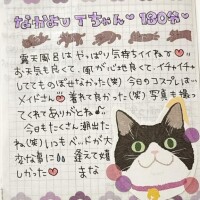 なかよし Tちゃん♥ 180分♥
露天風呂は やっぱり気持ちイイね♡♥
お天気も良くて、風が心地良くて、イチャイチャ
しててものぼせなかった(笑) 今日のコスプレは
メイドさん♥ 着れて良かった(笑) 写真も撮っ
てくれてありがとね♂
今日もたくさん潮出た
ね(笑) いつもベッドが大
変な事に 逢えて嬉
しかった♥
まな